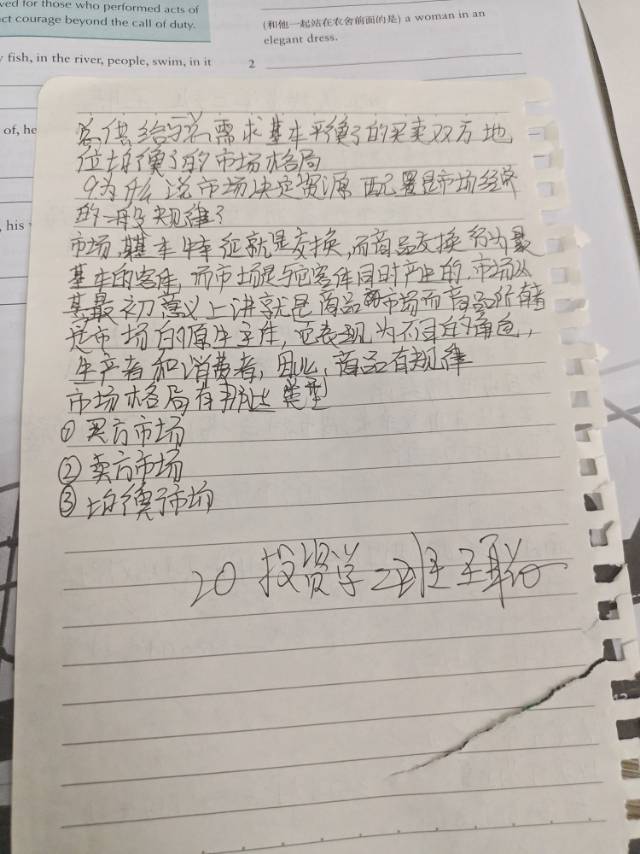 ved for those who performed acts of
ct courage beyond the call of duty.
(和他一起站在农舍前面的是) a woman in an
elegant dress.
fish, in the river, people, swim, in it
2
of, he
his
总供给与总需求基本平衡了的买卖双方地
位均衡了的市场格局
9为什么说市场决定资源配置是市场经济
的一般规律?
市场基本特征就是交换,而商品交换行为最
基本的客体,而市场是与客体同时产生的,市场从
其最初意义上讲就是商品的市场而商品所有者
是市场的原生主体,它表现为不同的角色,
生产者和消费者,因此,商品有规律
市场格局有类型
① 买方市场
② 卖方市场
③ 均衡市场
20投资学二班